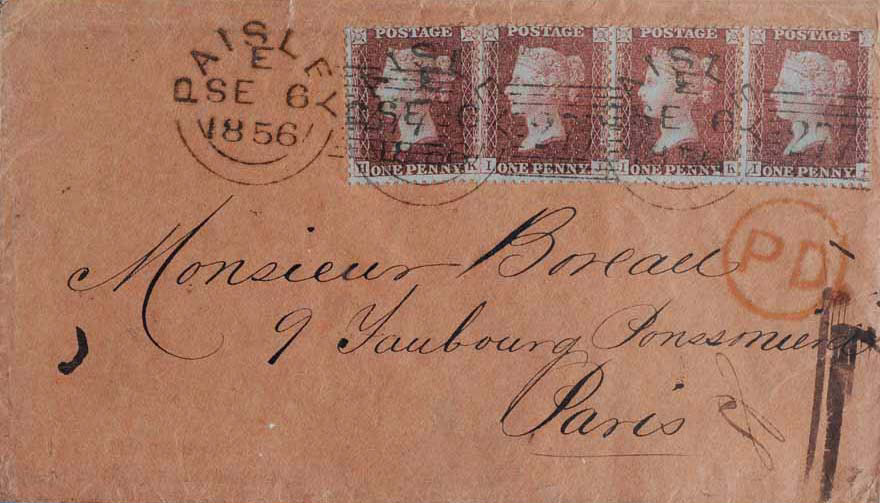 PAISLEY
E
SE 6
1856
POSTAGE POSTAGE POSTAGE POSTAGE
PAISLEY
E
SE 6
1856
PAISLEY
E
SE 6
H ONE PENNY K I ONE PENNY I ONE PENNY K I ONE PENNY
Monsieur Boreau
PD
9 Faubourg Poissonière
Paris